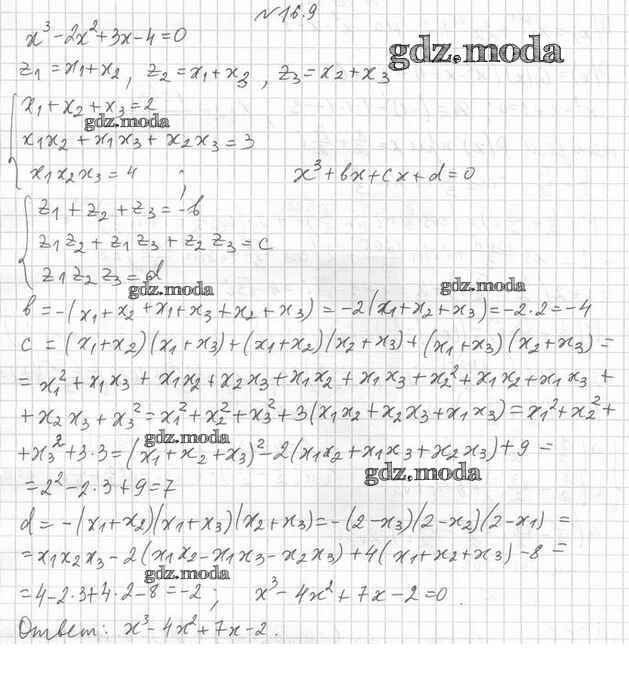 №16.9
x³-2x²+3x-4=0
gdz.moda
z₁=x₁+x₂, z₂=x₁+x₃, z₃=x₂+x₃
x₁+x₂+x₃=2
gdz.moda
x₁x₂+x₁x₃+x₂x₃=3
x₁x₂x₃=4 ; x³+bx+cx+d=0
z₁+z₂+z₃=-b
z₁z₂+z₁z₃+z₂z₃=c
z₁z₂z₃=d
gdz.moda gdz.moda
b=-(x₁+x₂+x₁+x₃+x₂+x₃)=-2(x₁+x₂+x₃)=-2·2=-4
c=(x₁+x₂)(x₁+x₃)+(x₁+x₂)(x₂+x₃)+(x₁+x₃)(x₂+x₃)=
=x₁²+x₁x₃+x₁x₂+x₂x₃+x₁x₂+x₁x₃+x₂²+x₁x₂+x₁x₃+
+x₂x₃+x₃²=x₁²+x₂²+x₃²+3(x₁x₂+x₂x₃+x₁x₃)=x₁²+x₂²+
gdz.moda
+x₃²+3·3=(x₁+x₂+x₃)²-2(x₁x₂+x₁x₃+x₂x₃)+9=
gdz.moda
=2²-2·3+9=7
d=-(x₁+x₂)(x₁+x₃)(x₂+x₃)=-(2-x₃)(2-x₂)(2-x₁)=
=x₁x₂x₃-2(x₁x₂-x₁x₃-x₂x₃)+4(x₁+x₂+x₃)-8=
gdz.moda
=4-2·3+4·2-8=-2; x³-4x²+7x-2=0.
Ответ: x³-4x²+7x-2.